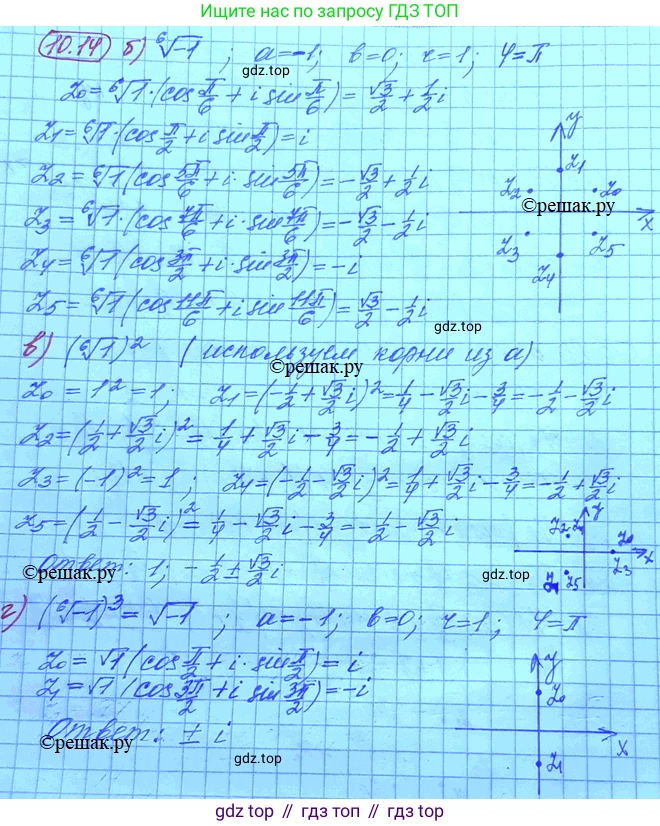 Ищите нас по запросу ГДЗ ТОП
10.14 б) ⁶√-1 ; a=-1; b=0; r=1; φ=π
gdz.top
z₀ = ⁶√1·(cos π/6 + i sin π/6) = √3/2 + 1/2 i
z₁ = ⁶√1·(cos π/2 + i sin π/2) = i
z₂ = ⁶√1 (cos 5π/6 + i· sin 5π/6) = -√3/2 + 1/2 i
z₃ = ⁶√1·(cos 7π/6 + i· sin 7π/6) = -√3/2 - 1/2 i
z₄ = ⁶√1 (cos 3π/2 + i· sin 3π/2) = -i
z₅ = ⁶√1 (cos 11π/6 + i sin 11π/6) = √3/2 - 1/2 i
y
z₁
z₂ z₀
©reшак.ру
x
z₃ z₅
z₄
gdz.top
в) (⁶√1)² (используем корни из а)
©reшак.ру
gdz.top
z₀ = 1² = 1; z₁ = (-1/2 + √3/2 i)² = 1/4 - √3/2 i - 3/4 = -1/2 - √3/2 i
z₂ = (1/2 + √3/2 i)² = 1/4 + √3/2 i - 3/4 = -1/2 + √3/2 i
z₃ = (-1)² = 1; z₄ = (-1/2 - √3/2 i)² = 1/4 + √3/2 i - 3/4 = -1/2 + √3/2 i
z₅ = (1/2 - √3/2 i)² = 1/4 - √3/2 i - 3/4 = -1/2 - √3/2 i
y
z₂ z₄
z₀
x
z₃
z₁ z₅
Ответ: 1; -1/2 ± √3/2 i
©reшак.ру
gdz.top
г) (⁶√-1)³ = √-1 ; a=-1; b=0; r=1; φ=π
z₀ = √1 (cos π/2 + i· sin π/2) = i
z₁ = √1 (cos 3π/2 + i sin 3π/2) = -i
y
z₀
x
z₁
Ответ: ± i
©reшак.ру
gdz.top
gdz.top // гдз.топ // gdz.top // гдз.топ